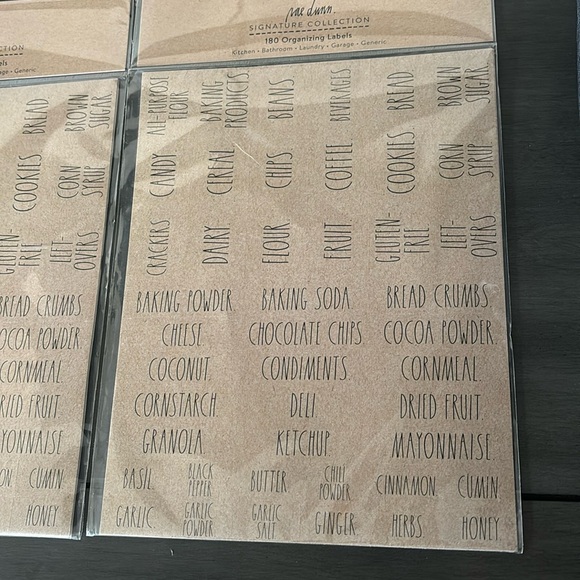 CTION
els
age • Generic
BREAD
BROWN
SUGAR
COOKIES
CORN
SYRUP
GLUTEN-
FREE
LEFT-
OVERS
BREAD CRUMBS
COCOA POWDER.
CORNMEAL.
RIED FRUIT.
YONNAISE
ON.
CUMIN.
HONEY
rae dunn.
SIGNATURE COLLECTION
180 Organizing Labels
Kitchen • Bathroom • Laundry • Garage • Generic
ALL-PURPOSE
FLOUR
BAKING
PRODUCTS
BEANS
BEVERAGES
BREAD
BROWN
SUGAR
CANDY
CEREAL
CHIPS
COFFEE
COOKIES
CORN
SYRUP
CRACKERS
DAIRY
FLOUR
FRUIT
GLUTEN-
FREE
LEFT-
OVERS
BAKING POWDER. BAKING SODA. BREAD CRUMBS
CHEESE CHOCOLATE CHIPS. COCOA POWDER.
COCONUT. CONDIMENTS. CORNMEAL.
CORNSTARCH. DELI DRIED FRUIT.
GRANOLA KETCHUP MAYONNAISE
BASIL. BLACK
PEPPER BUTTER CHILI
POWDER. CINNAMON. CUMIN.
GARLIC GARLIC
POWDER GARLIC
SALT GINGER. HERBS. HONEY